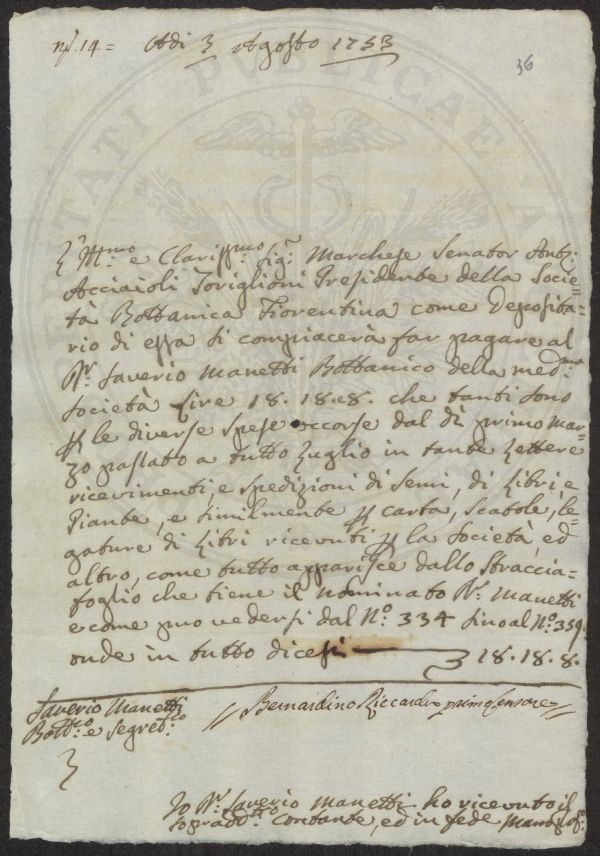 nº. 14 = Adi 3 Agosto 1753
36
Ill.mo e Clariss.mo Sig.r Marchese Senator Ant.o
Acciaioli Toriglioni Presidente della Socie=
tà Bottanica Fiorentina come Deposita=
rio di essa si compiacerà far pagare al
Dr. Saverio Manetti Bottanico della med.ma
Società Lire 18. 18. 8. che tanti sono
p le diverse spese occorse dal dì primo Mar=
zo passato a tutto Luglio in tante Lettere
ricevimenti, e spedizioni di Semi, di Libri, e
Piante, e similmente p carta, scatole, le=
gature di Libri ricevuti p la Società, ed
altro, come tutto apparisce dallo Straccia=
foglio che tiene il nominato Dr. Manetti
e come può vedersi dal Nº. 334 sino al Nº. 359.
onde in tutto dicesi 18. 18. 8.
Saverio Manetti
Bott.co e Segret.rio
Bernardino Riccardi primo Censore
Io Dr. Saverio Manetti ho ricevuto il
soprad.tto contante, ed in fede Mano
PROSPERITATI PUBLICAE